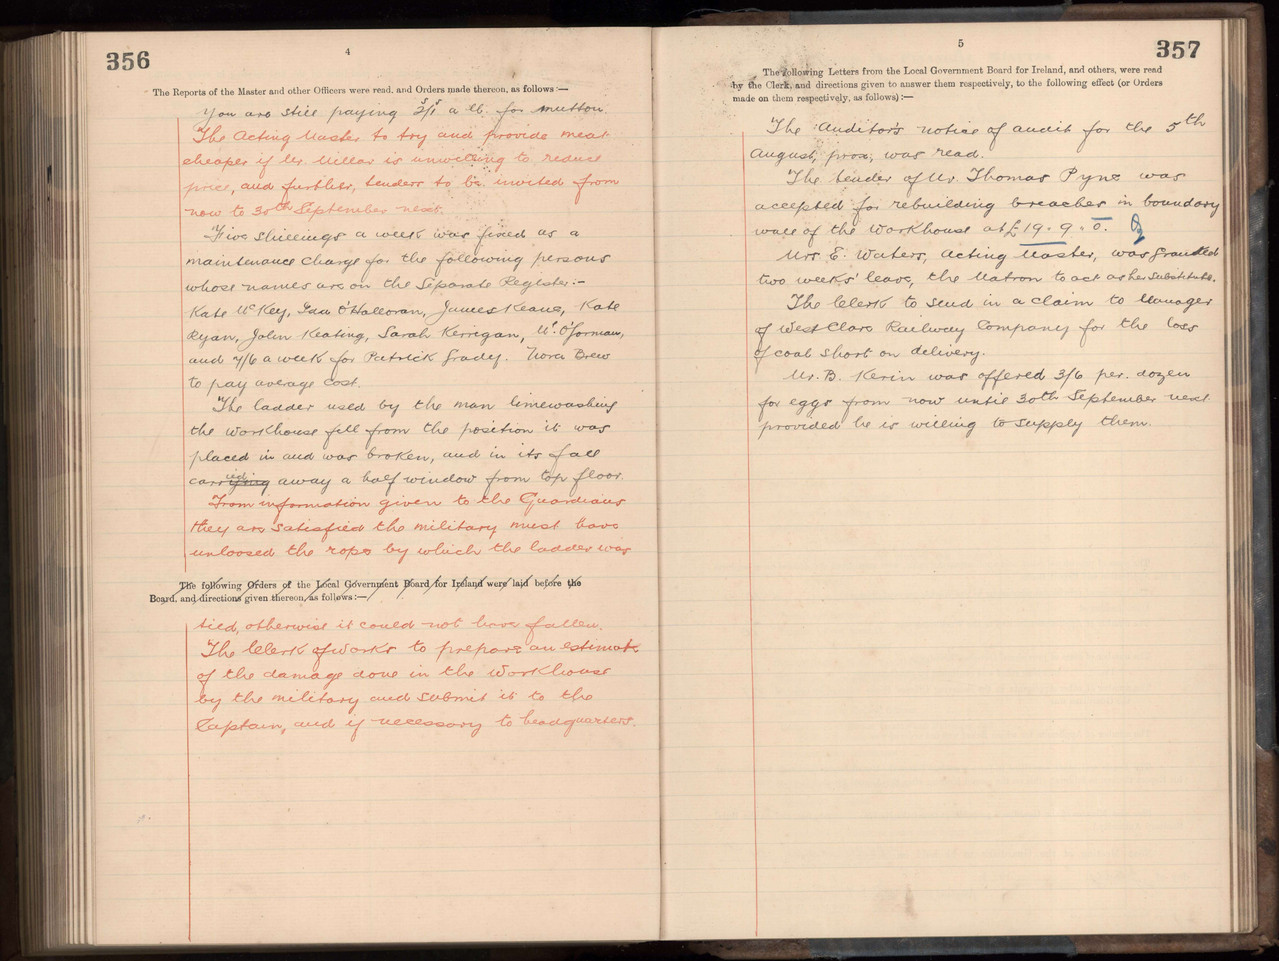 356
4
The Reports of the Master and other Officers were read, and Orders made thereon, as follows :—
You are still paying a lb. for mutton.
The Acting Master to try and provide meat
cheaper if Mr. Millar is unwilling to reduce
price, and further, tenders to be invited from
now to 30th September next.
Five shillings a week was fixed as a
maintenance charge for the following persons
whose names are on the Separate Register:-
Kate McKey, O'Halloran, James Keane, Kate
Ryan, John Keating, Sarah Kerrigan, M. O'Gorman,
and 7/6 a week for Patrick Grady. Nora Brew
to pay average cost.
The ladder used by the man limewashing
the workhouse fell from the position it was
placed in and was broken, and in its fall
carried away a half window from top floor.
From information given to the Guardians
they are satisfied the military must have
unloosed the rope by which the ladder was
The following Orders of the Local Government Board for Ireland were laid before the
Board, and directions given thereon, as follows :—
tied, otherwise it could not have fallen.
The Clerk of Works to prepare an estimate
of the damage done in the Workhouse
by the military and submit it to the
Captain, and if necessary to headquarters.
5
357
The following Letters from the Local Government Board for Ireland, and others, were read
by the Clerk, and directions given to answer them respectively, to the following effect (or Orders
made on them respectively, as follows) :—
The Auditor's notice of audit for the 5th
August, prox, was read.
The tender of Mr. Thomas Pyne was
accepted for rebuilding breaches in boundary
wall of the Workhouse at £19. 9. 0.
Mrs E. Waters, Acting Master, was granted
two weeks' leave, the Matron to act as her substitute.
The Clerk to send in a claim to Manager
of West Clare Railway Company for the loss
of coal short on delivery.
Mr. B. Kerin was offered 3/6 per. dozen
for eggs from now until 30th September next
provided he is willing to supply them.